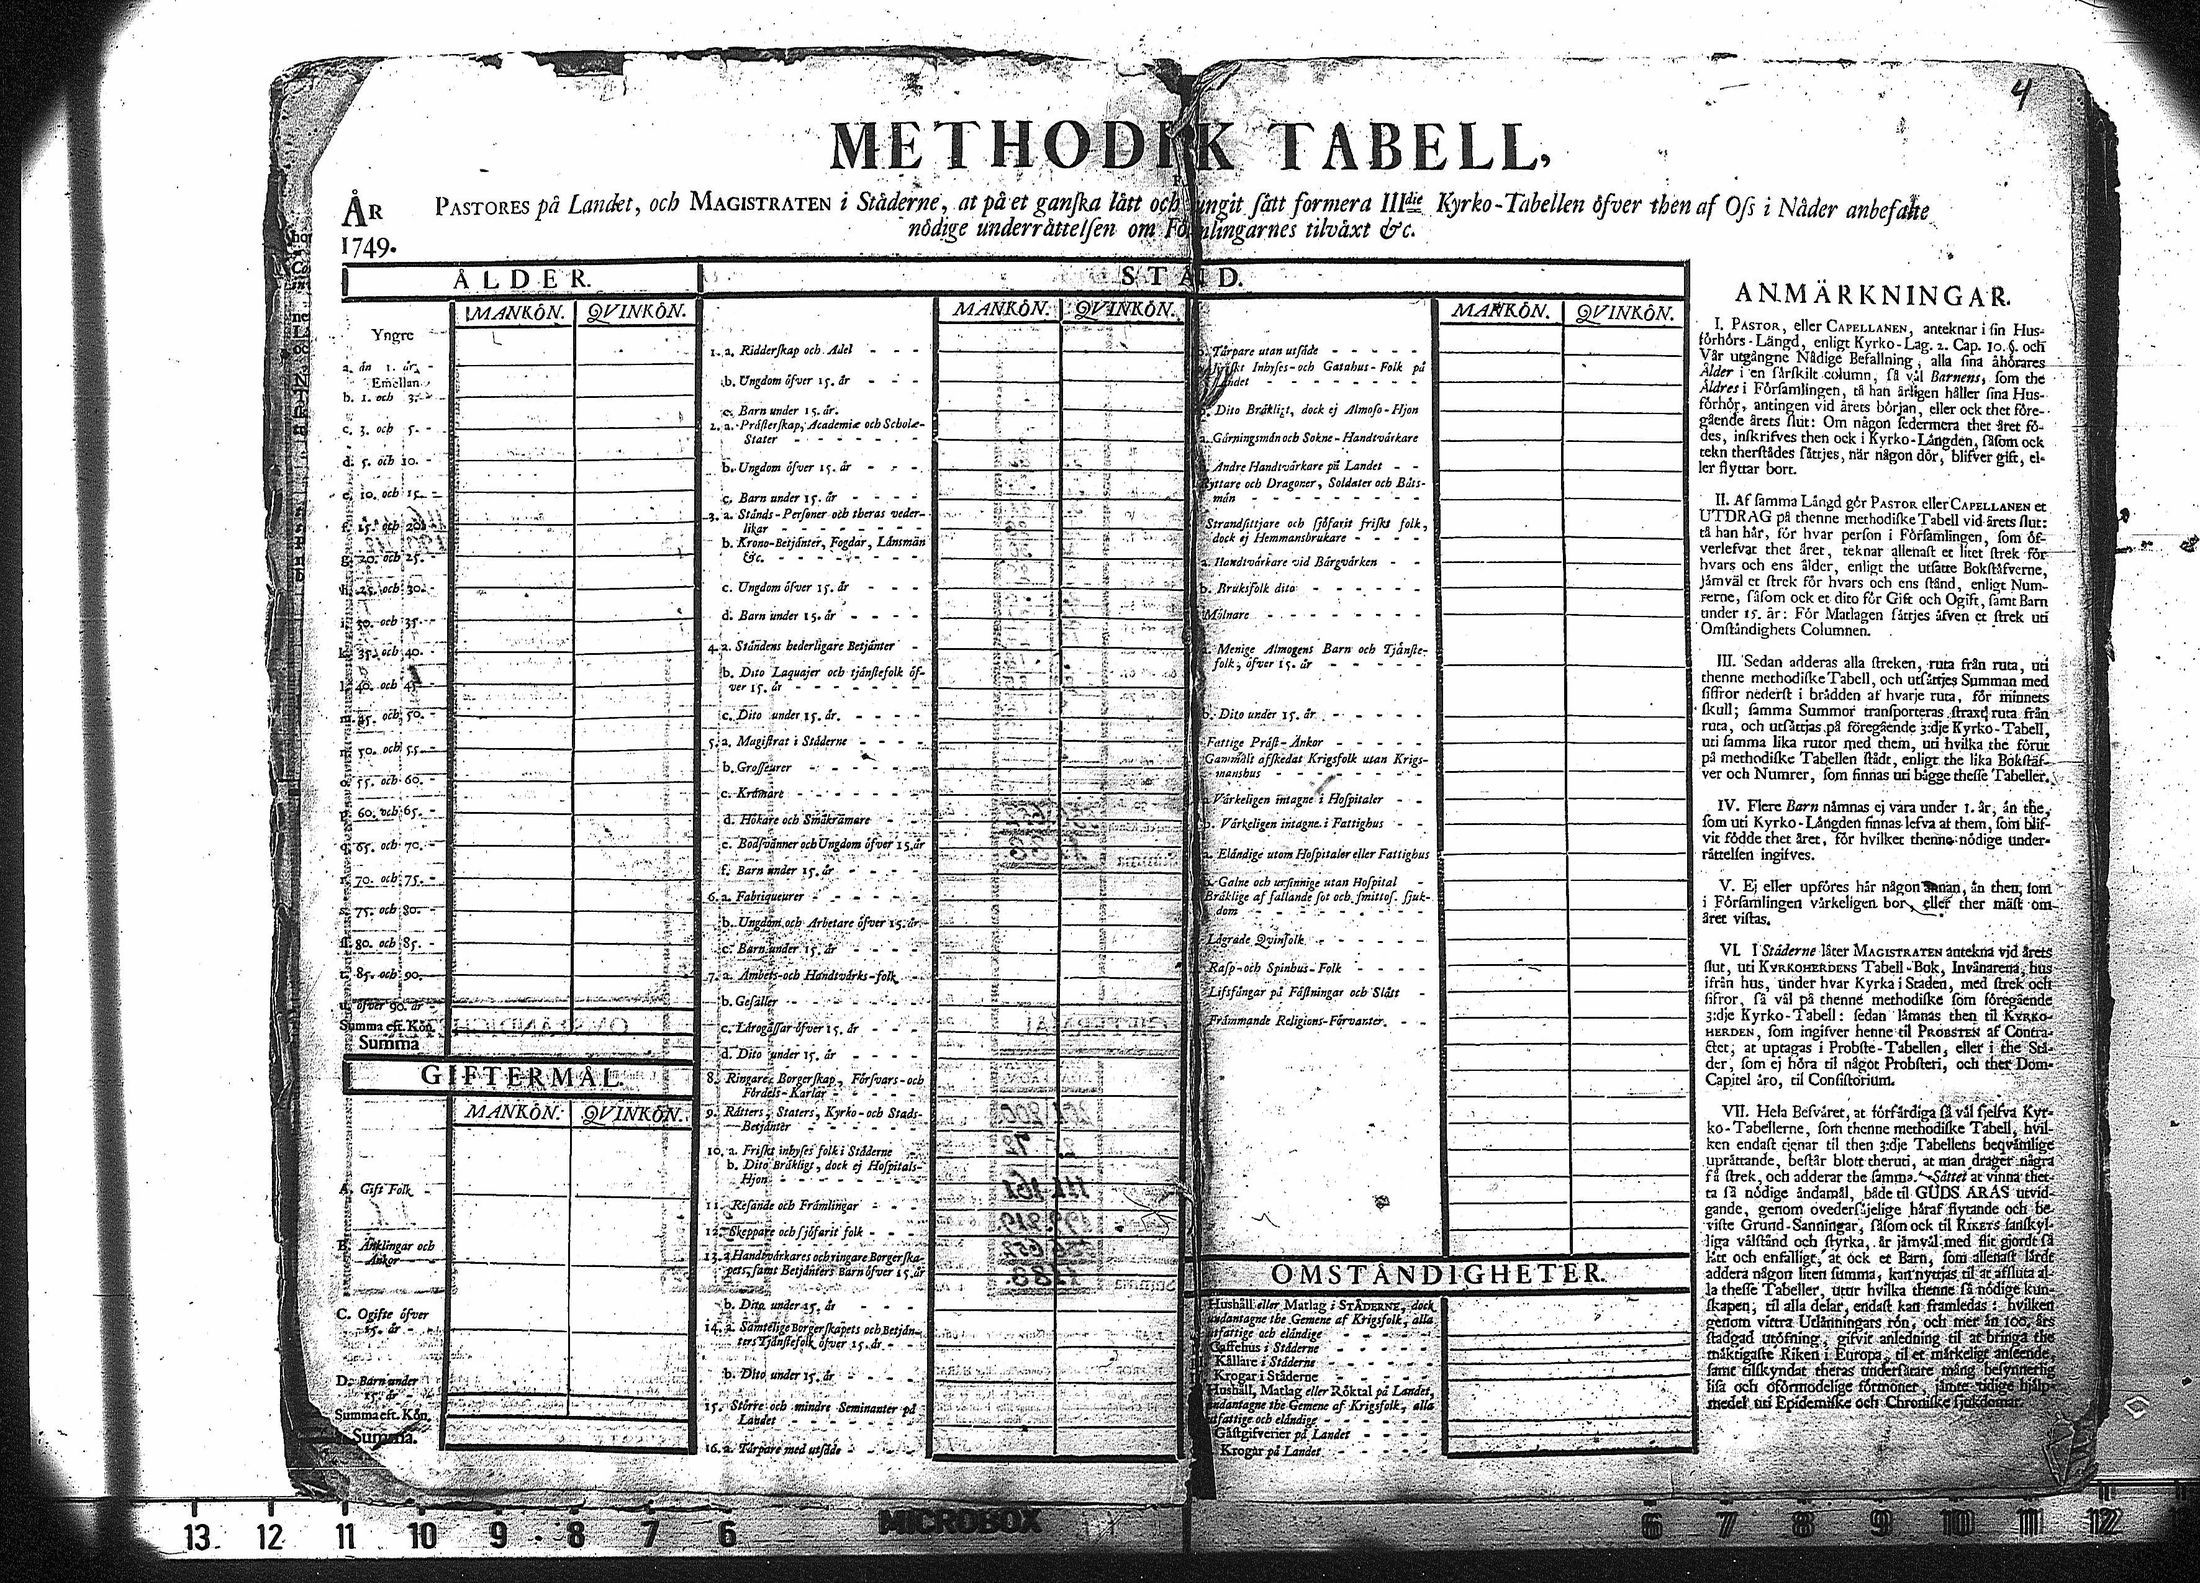 4
METHODIK TABELL,
ÅR
1749.
PASTORES på Landet, och MAGISTRATEN i Städerne, at på et ganſka lätt och ſätt formera IIIdie Kyrko-Tabellen öfver then af Oſs i Nåder anbefalte
nödige underrättelſen om Förſamlingarnes tilväxt &c.
ÅLDER.
MANKÖN. QVINKÖN.
Yngre
a. än 1. år. -
Emellan
b. 1. och 3. -
c. 3. och 5. -
d. 5. och 10. -
e. 10. och 15. -
f. 15. och 20. -
g. 20. och 25. -
h. 25. och 30. -
i. 30. och 35. -
k. 35. och 40. -
l. 40. och 45. -
m. 45. och 50. -
n. 50. och 55. -
o. 55. och 60. -
p. 60. och 65. -
q. 65. och 70. -
r. 70. och 75. -
s. 75. och 80. -
ſſ. 80. och 85. -
t. 85. och 90. -
u. öfver 90. år -
Summa eft. Kön.
Summa
GIFTERMÅL.
MANKÖN. QVINKÖN.
A. Gift Folk -
B. Änklingar och
Änkor
C. Ogifte öfver
15. år - -
D. Barn under
15. år - -
Summa eft. Kön.
Summa.
STÅND.
MANKÖN. QVINKÖN.
1. a. Ridderſkap och Adel - - -
b. Ungdom öfver 15. år - - -
c. Barn under 15. år.
2. a. Präſterſkap, Academiæ och Scholæ-
Stater - - - - - -
b. Ungdom öfver 15. år - - -
c. Barn under 15. år - - - -
3. a. Stånds-Perſoner och theras veder-
likar - - - - - -
b. Krono-Betjänter, Fogdar, Länsmän
&c. - - - - - -
c. Ungdom öfver 15. år - - -
d. Barn under 15. år - - - -
4. a. Ståndens hederligare Betjänter -
b. Dito Laquajer och tjänſtefolk öf-
ver 15. år - - - - - -
c. Dito under 15. år. - - - -
5. a. Magiſtrat i Städerne - - - -
b. Groſſeurer - - - - - -
c. Krämare - - - - - -
d. Hökare och Småkrämare - - -
e. Bodſvänner och Ungdom öfver 15. år
f. Barn under 15. år - - - -
6. a. Fabriqueurer - - - - -
b. Ungdom och Arbetare öfver 15. år -
c. Barn under 15. år - - - -
7. a. Ämbets- och Handtvärks-folk - -
b. Geſäller - - - - - -
c. Lärogåſſar öfver 15. år - - -
d. Dito under 15. år - - - -
8. Ringare Borgerſkap, Förſvars- och
Fördels-Karlar - - - -
9. Rätters, Staters, Kyrko- och Stads-
Betjänter - - - - -
10. a. Friſkt inhyſes folk i Städerne - -
b. Dito Bräkligt, dock ej Hoſpitals-
Hjon - - - - - -
11. Reſande och Främlingar - - -
12. Skeppare och ſjöfarit folk - - -
13. a. Handtvärkares och ringare Borgerſka-
pets, ſamt Betjänters Barn öfver 15. år
b. Dito under 15. år - - - -
14. a. Samtelige Borgerſkapets och Betjän-
ters Tjänſtefolk öfver 15. år - -
b. Dito under 15. år - - - -
15. Större och mindre Seminanter på
Landet - - - - - -
16. a. Tårpare med utſäde - - - -
MANKÖN. QVINKÖN.
b. Tårpare utan utſäde - - - - -
Friſkt Inhyſes- och Gatuhus-Folk på
Landet - - - - - -
b. Dito Bräkligt, dock ej Almoſo-Hjon
a. Gärningsmän och Sokne-Handtvärkare
Andre Handtvärkare på Landet - -
Ryttare och Dragoner, Soldater och Båts-
män - - - - - - -
Strandſittjare och ſjöfarit friſkt folk,
dock ej Hemmansbrukare - - - -
a. Handtvärkare vid Bärgvärken - -
b. Bruksfolk dito - - - - - -
Mölnare - - - - - - -
Menige Almogens Barn och Tjänſte-
folk, öfver 15. år - - - - -
b. Dito under 15. år - - - - -
Fattige Präſt-Änkor - - - - -
Gammalt afſkedat Krigsfolk utan Krigs-
manshus - - - - - -
a. Värkeligen intagne i Hoſpitaler - -
b. Värkeligen intagne i Fattighus - -
a. Eländige utom Hoſpitaler eller Fattighus
b. Galne och urſinnige utan Hoſpital -
Bräklige af fallande ſot och ſmittoſ. ſjuk-
dom - - - - - - -
Lägrade Qvinfolk - - - - - -
Raſp- och Spinhus-Folk - - - -
Lifsfångar på Fäſtningar och Slått -
Främmande Religions-Förvanter. - -
OMSTÄNDIGHETER.
Hushåll eller Matlag i STÄDERNE, dock
undantagne the Gemene af Krigsfolk, alla
utfattige och eländige - - - -
Caffehus i Städerne - - - -
Källare i Städerne - - - -
Krogar i Städerne - - - -
Hushåll, Matlag eller Röktal på Landet,
undantagne the Gemene af Krigsfolk, alla
utfattige och eländige - - - -
Gäſtgifverier på Landet - - - -
Krogar på Landet - - - -
ANMÄRKNINGAR.
I. PASTOR, eller CAPELLANEN, anteknar i ſin Hus-
förhörs-Längd, enligt Kyrko-Lag. 2. Cap. 10. §. och
Vår utgångne Nådige Befallning, alla ſina åhörares
Ålder i en ſärſkilt column, ſå väl Barnens, ſom the
Äldres i Förſamlingen, tå han årligen håller ſina Hus-
förhör, antingen vid årets början, eller ock thet före-
gående årets ſlut: Om någon ſedermera thet året fö-
des, inſkrifves then ock i Kyrko-Längden, ſåſom ock
tekn therſtädes ſättjes, när någon dör, blifver gift, el-
ler flyttar bort.
II. Af ſamma Längd gör PASTOR eller CAPELLANEN et
UTDRAG på thenne methodiſke Tabell vid årets ſlut:
tå han här, för hvar perſon i Förſamlingen, ſom öf-
verlefvat thet året, teknar allenaſt et litet ſtrek för
hvars och ens ålder, enligt the utſatte Bokſtäfverne,
jämväl et ſtrek för hvars och ens ſtånd, enligt Num-
rerne, ſåſom ock et dito för Gift och Ogift, ſamt Barn
under 15. år: För Matlagen ſättjes äfven et ſtrek uti
Omſtändighets Columnen.
III. Sedan adderas alla ſtreken, ruta från ruta, uti
thenne methodiſke Tabell, och utſättjes Summan med
ſiffror nederſt i brädden af hvarje ruta, för minnets
ſkull; ſamma Summor transporteras ſtraxt ruta från
ruta, och utſättjas på föregående 3:dje Kyrko-Tabell,
uti ſamma lika rutor med them, uti hvilka the förut
på methodiſke Tabellen ſtådt, enligt the lika Bokſtäf-
ver och Numrer, ſom finnas uti bägge theſſe Tabeller.
IV. Flere Barn nämnas ej vara under 1. år, än the,
ſom uti Kyrko-Längden finnas lefva af them, ſom blif-
vit födde thet året, för hvilket thenne nödige under-
rättelſen ingifves.
V. Ej eller upföres här någon annan, än then, ſom
i Förſamlingen värkeligen bor, eller ther mäſt om
året viſtas.
VI. I Städerne låter MAGISTRATEN antekna vid årets
ſlut, uti KYRKOHERDENS Tabell-Bok, Invånarena, hus
ifrån hus, under hvar Kyrka i Staden, med ſtrek och
ſifror, ſå väl på thenne methodiſke ſom föregående
3:dje Kyrko-Tabell: ſedan lämnas then til KYRKO-
HERDEN, ſom ingifver henne til PROBSTEN af Contra-
ctet, at uptagas i Probſte-Tabellen, eller i the Stä-
der, ſom ej höra til något Probſteri, och ther Dom-
Capitel äro, til Conſiſtorium.
VII. Hela Beſväret, at förfärdiga ſå väl ſjelfva Kyr-
ko-Tabellerne, ſom thenne methodiſke Tabell, hvil-
ken endaſt tjenar til then 3:dje Tabellens beqvämlige
uprättande, beſtår blott theruti, at man drager några
få ſtrek, och adderar the ſamma. Sättet at vinna thet-
ta ſå nödige ändamål, både til GUDS ÄRAS utvid-
gande, genom ovederſäjelige häraf flytande och be-
viſte Grund-Sanningar, ſåſom ock til RIKETS ſanſkyl-
liga välſtånd och ſtyrka, är jämväl med flit gjordt ſå
lätt och enfälligt, at ock et Barn, ſom allenaſt lärdt
addera någon liten ſumma, kan nyttjas til at afſluta al-
la theſſe Tabeller, utur hvilka thenne ſå nödige kun-
ſkapen, til alla delar, endaſt kan framledas: hvilken
genom vittra Utlänningars rön, och mer än 100. års
ſtadgad utöfning, gifvit anledning til at bringa the
mäktigaſte Riken i Europa, til et märkeligt anſeende,
ſamt tilſkyndat theras underſåtare mång beſynnerlig
liſa och oförmodelige förmoner, jämte tidige hjälp-
medel uti Epidemiſke och Chroniſke ſjukdomar.
13 12 11 10 9 8 7 6 MICROBOX 6 7 8 9 10 11 12